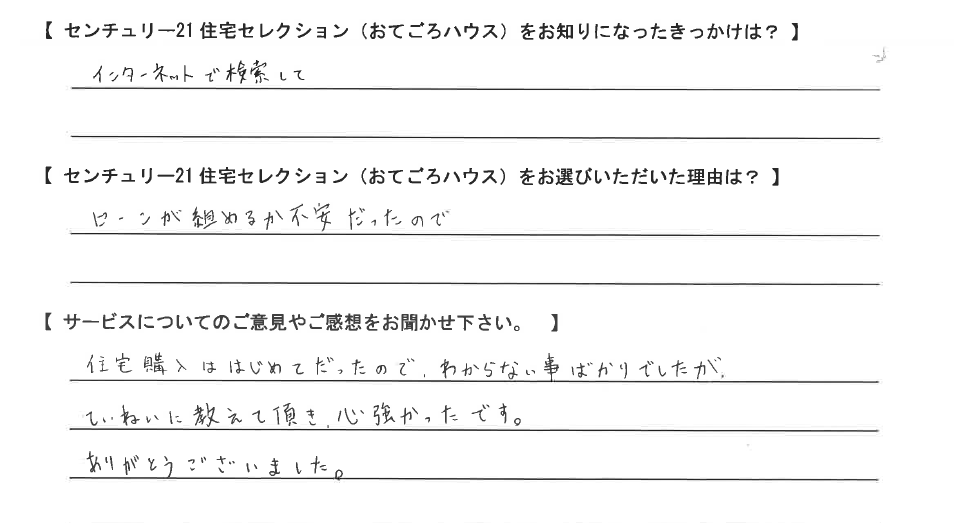 【 センチュリー21住宅セレクション（おてごろハウス）をお知りになったきっかけは？ 】
インターネットで検索して
【 センチュリー21住宅セレクション（おてごろハウス）をお選びいただいた理由は？ 】
ローンが組めるか不安だったので
【 サービスについてのご意見やご感想をお聞かせ下さい。 】
住宅購入ははじめてだったので、わからない事ばかりでしたが、
ていねいに教えて頂き、心強かったです。
ありがとうございました。